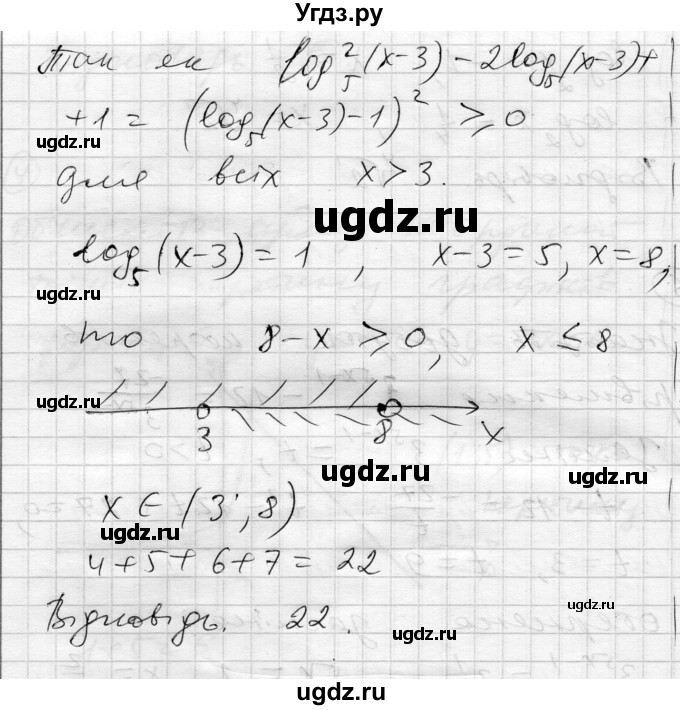 Угдз.ру
Так як log₅²(x-3) - 2log₅(x-3)+
+1 = (log₅(x-3)-1)² ⩾ 0
ugdz.ru
для всіх x > 3.
ugdz.ru
log₅(x-3) = 1, x-3 = 5, x = 8,
ugdz.ru
то 8-x ⩾ 0, x ≤ 8
ugdz.ru
3 8 x
ugdz.ru
x ∈ (3; 8)
ugdz.ru
4+5+6+7 = 22
Відповідь. 22.
ugdz.ru
ugdz.ru
ugdz.ru
ugdz.ru